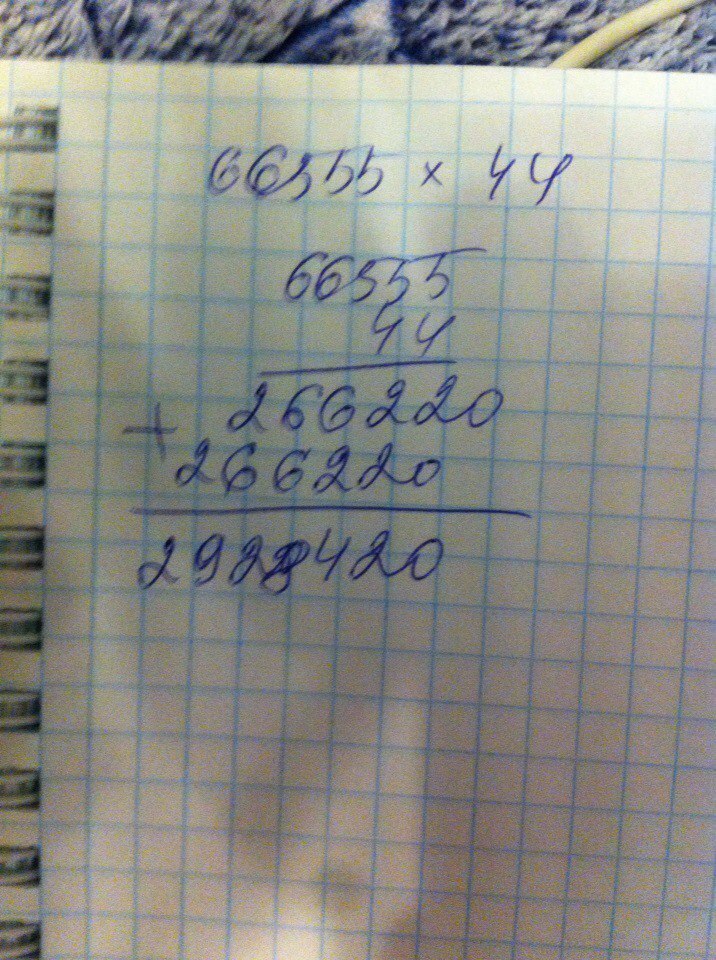 66555 × 44
66555
44
+ 266220
266220
2928420